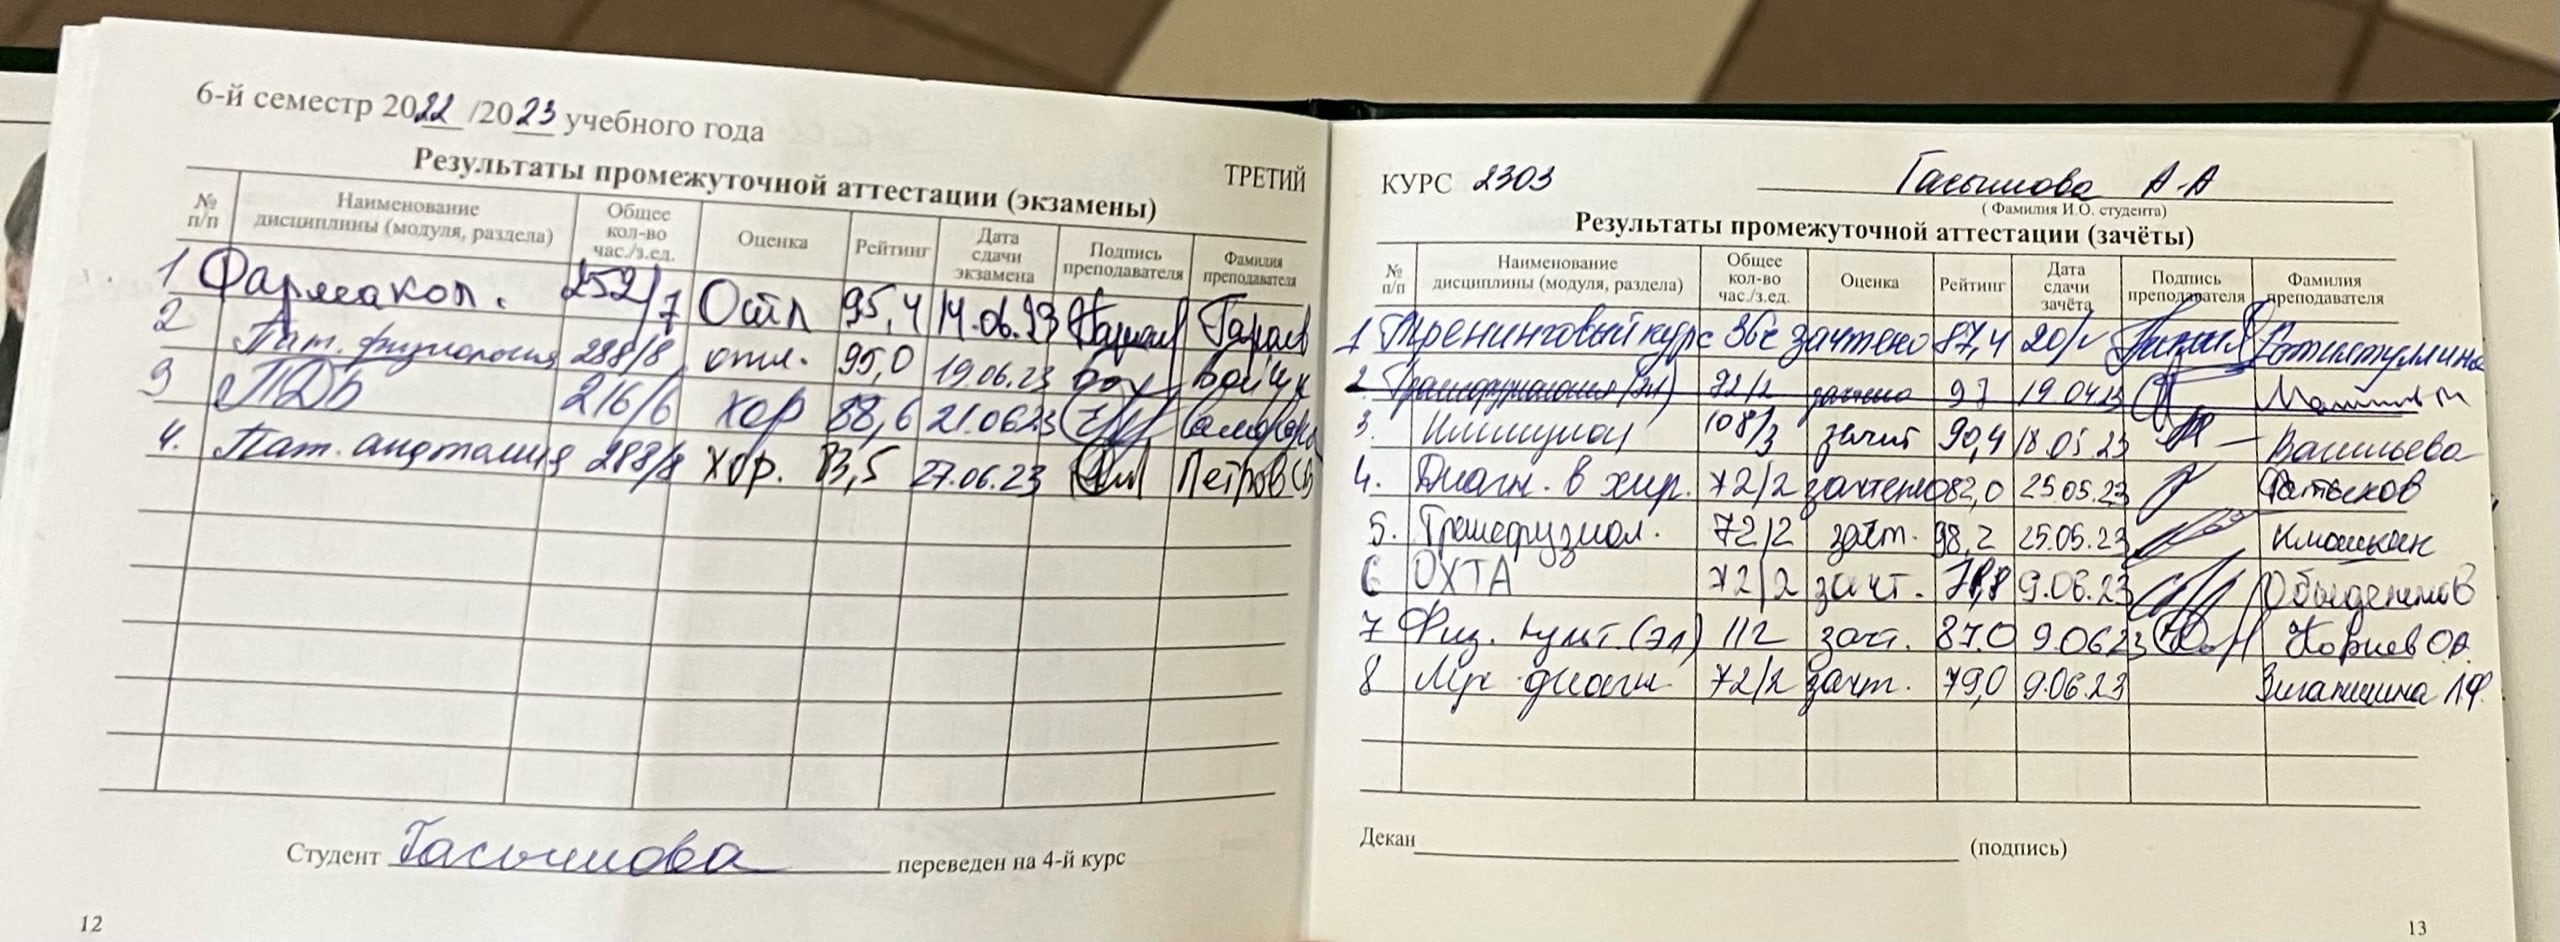 6-й семестр 2022/2023 учебного года
Результаты промежуточной аттестации (экзамены)
ТРЕТИЙ
№ п/п Наименование дисциплины (модуля, раздела) Общее кол-во час./з.ед. Оценка Рейтинг Дата сдачи экзамена Подпись преподавателя Фамилия преподавателя
1 Фармакол. 252/7 Отл 95,4 14.06.23 Гараев
2 Пат. физиология 288/8 отл. 95,0 19.06.23 Бойчук
3 ПДБ 216/6 хор 88,6 21.06.23
4. Пат. анатомия 288/8 хор. 83,5 27.06.23 Петров СВ
Студент Гасымова переведен на 4-й курс
12
КУРС 2303 Гасымова А.А
( Фамилия И.О. студента)
Результаты промежуточной аттестации (зачёты)
№ п/п Наименование дисциплины (модуля, раздела) Общее кол-во час./з.ед. Оценка Рейтинг Дата сдачи зачёта Подпись преподавателя Фамилия преподавателя
1 Тренинговый курс 36с зачтено 87,4
2. Трансфузиология (эл) 72/2 зачтено 97 19.04.23
3. Иммунол 108/3 зачт 90,4 18.05.23 Васильева
4. Диагн. в хир. 72/2 зачтено 82,0 25.05.23 Фатыхов
5. Трансфузиол. 72/2 зачт. 98,2 25.05.23
6 ОХТА 72/2 зачт. 9.06.23 Обыденнов
7 Физ. культ. (эл) 112 зачт. 87.0 9.06.23
8 диагн. 72/2 зачт. 79,0 9.06.23 Зиганшина Л.Ф.
Декан (подпись)
13